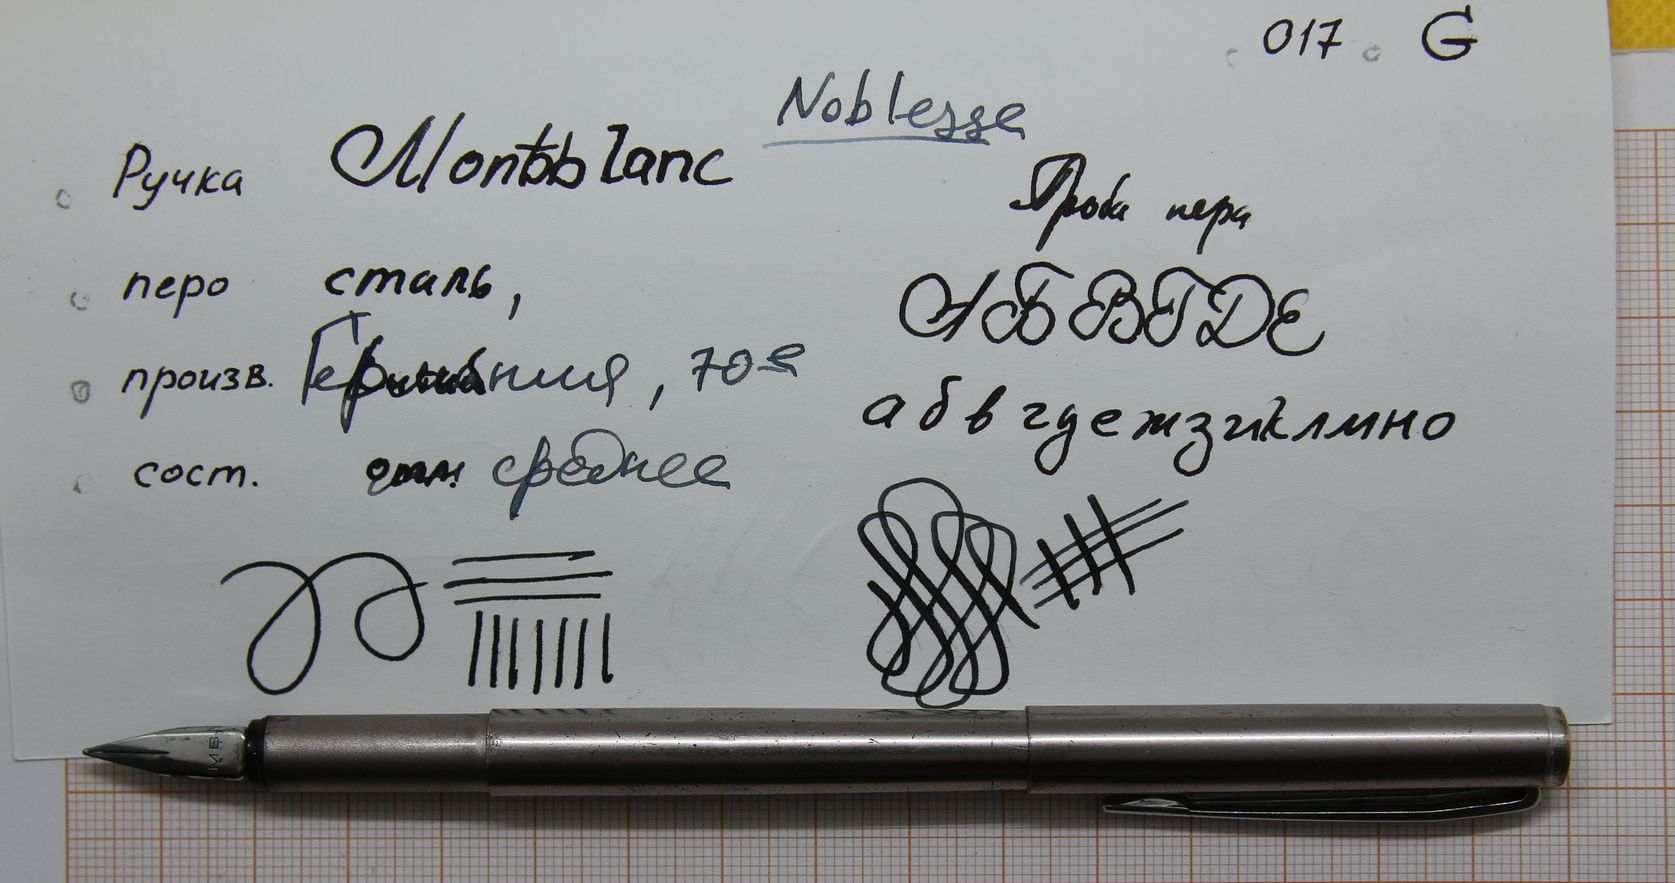 017 G
Noblesse
Ручка Montblanc
Проба пера
перо сталь,
АБВГДЕ
произв. Германия, 70е
абвгдежзиклмно
сост. среднее
MB